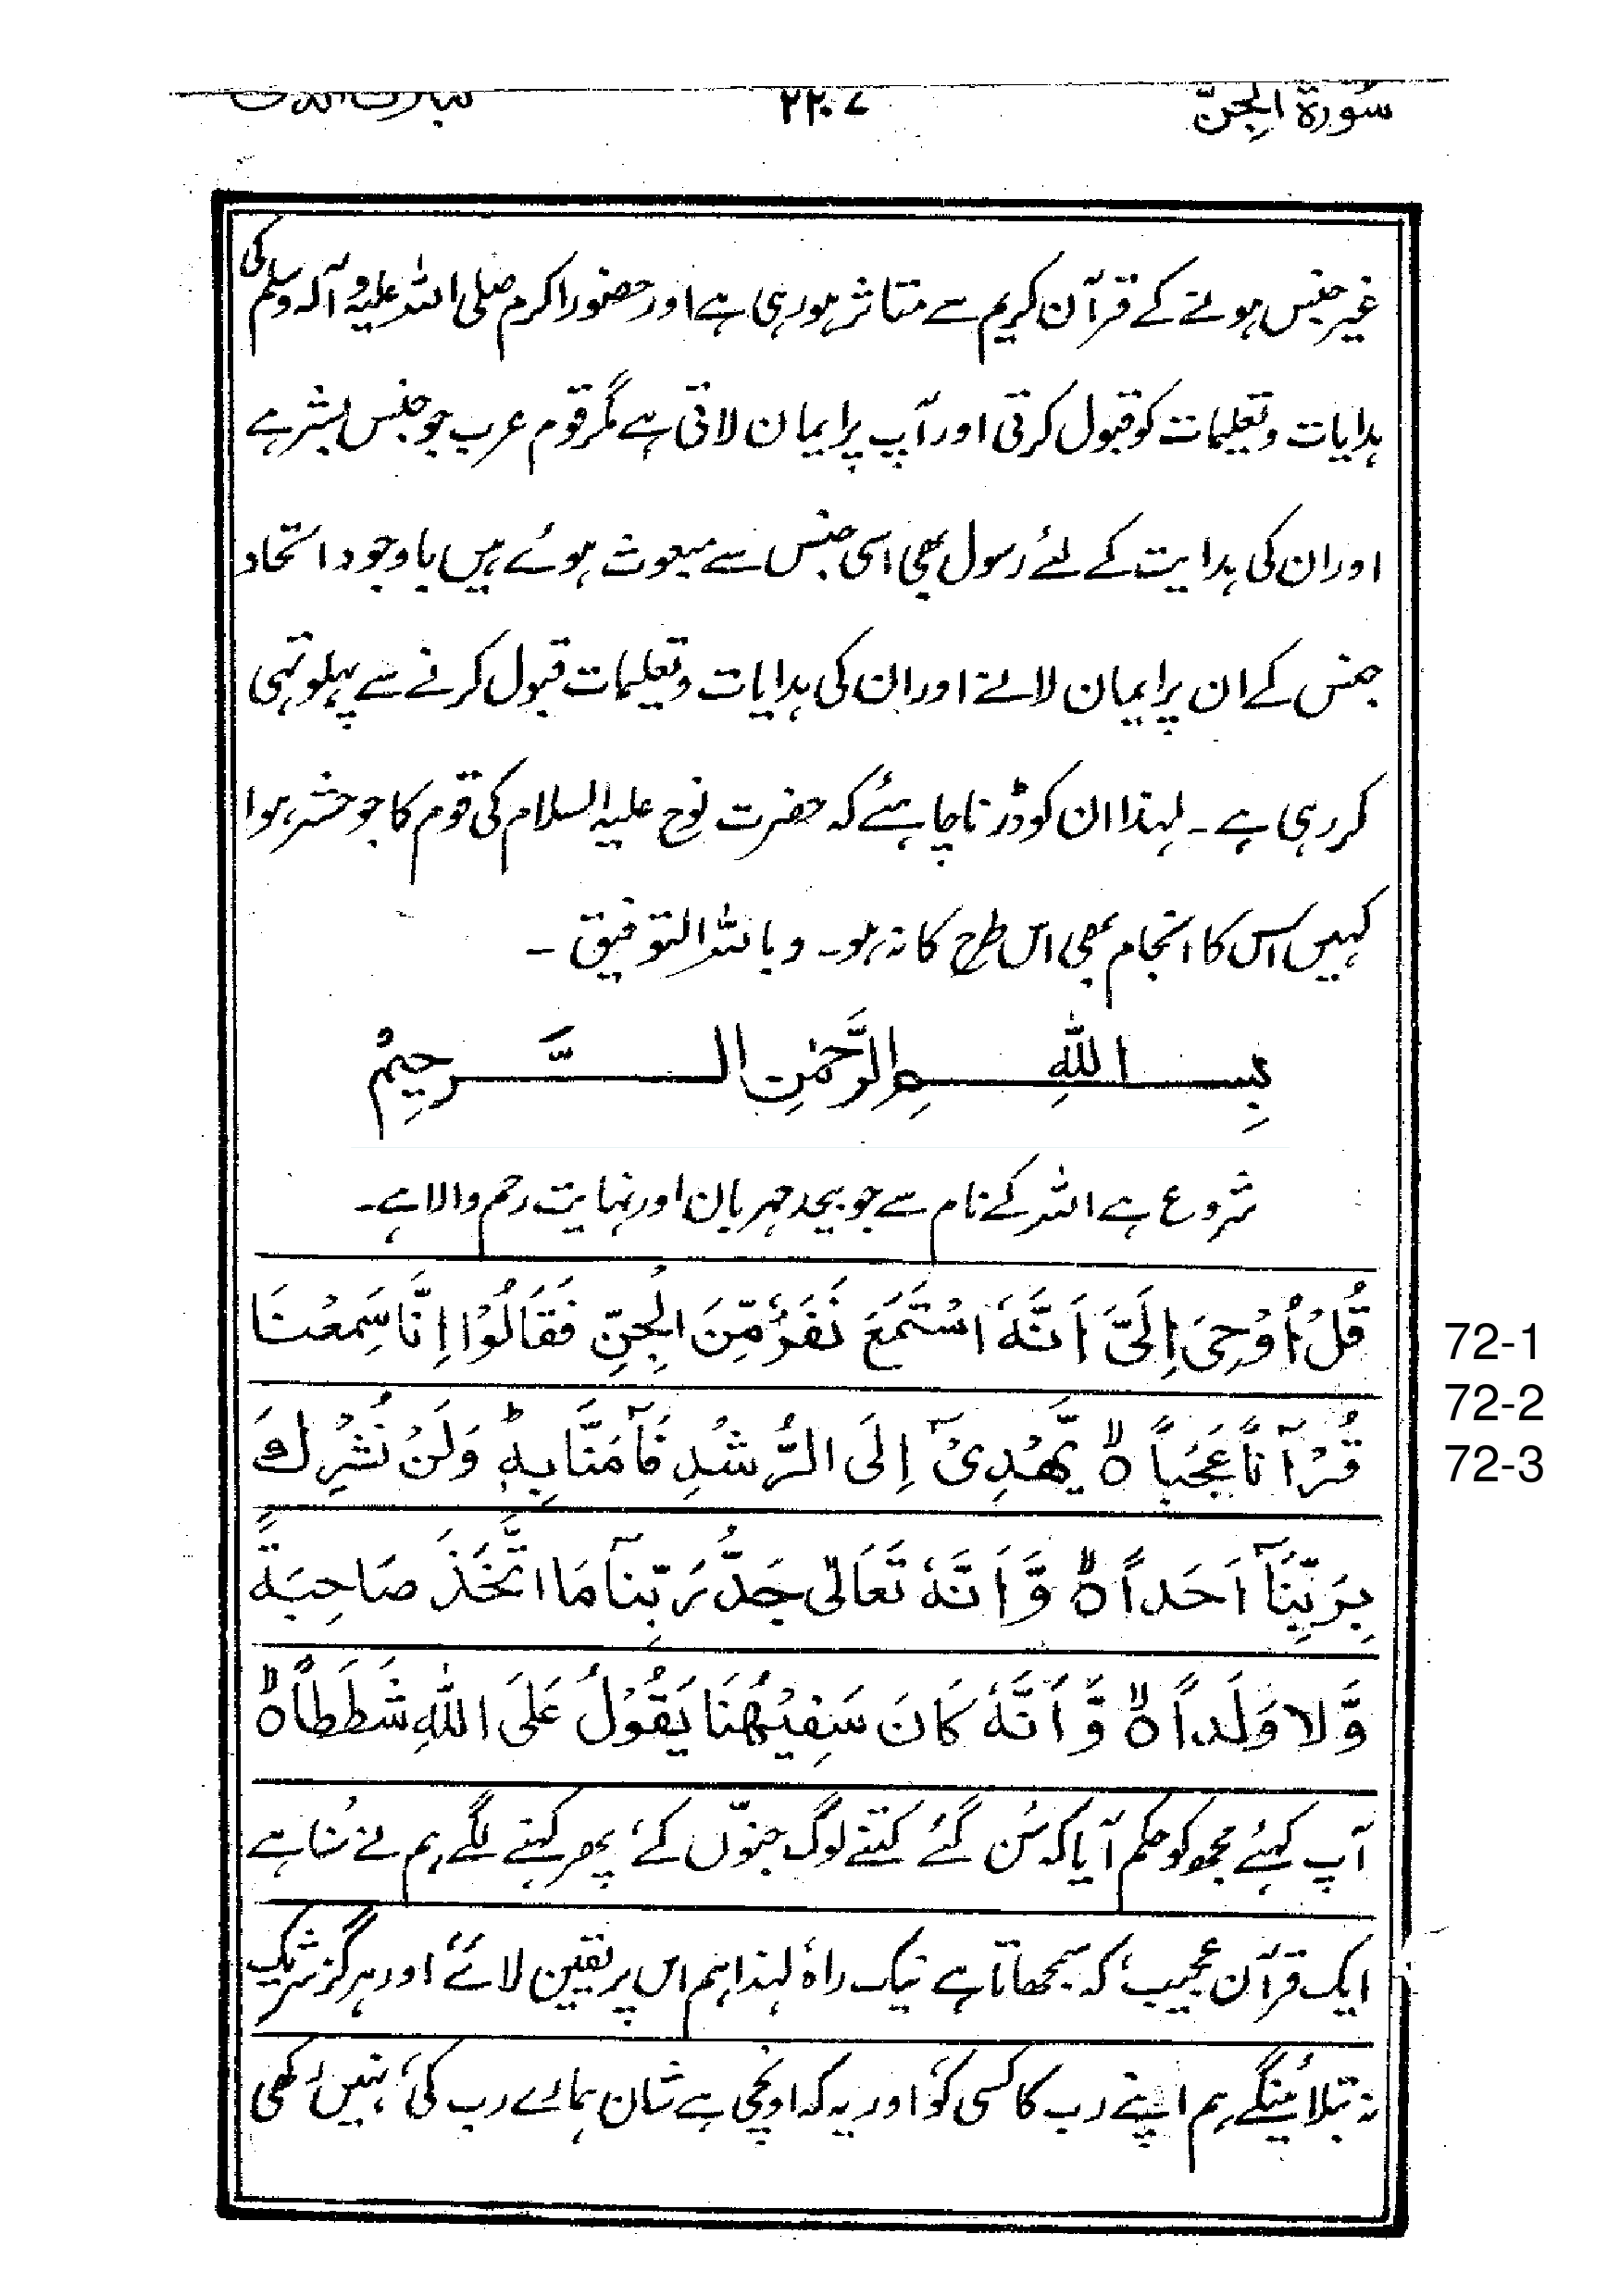 سُورۃ الجِنّ
۲۲۰۷
تبارک الذی
غیر جنس ہونے کے قرآن کریم سے متاثر ہو رہی ہے اور حضور اکرم صلی اللہ علیہ وآلہ وسلم کی
ہدایات وتعلیمات کو قبول کرتی اور آپ پر ایمان لاتی ہے مگر قوم عرب جو جنس بشر ہے
اور ان کی ہدایت کے لئے رسول بھی اسی جنس سے مبعوث ہوئے ہیں باوجود اتحاد
جنس کے ان پر ایمان لانے اور ان کی ہدایات وتعلیمات قبول کرنے سے پہلو تہی
کر رہی ہے ۔ لہذا ان کو ڈرنا چاہئے کہ حضرت نوح علیہ السلام کی قوم کا جو حشر ہوا
کہیں اس کا انجام بھی اس طرح کا نہ ہو۔ وباللہ التوفیق ۔
بِسـمِ اللّٰہِ الرَّحْمٰنِ الـرَّحِیْمِ
شروع ہے اللہ کے نام سے جو بیحد مہربان اور نہایت رحم والا ہے۔
قُلْ اُوْحِیَ اِلَیَّ اَنَّہٗ اسْتَمَعَ نَفَرٌ مِّنَ الْجِنِّ فَقَالُوْا اِنَّا سَمِعْنَا
72-1
قُرْاٰناً عَجَباً ۙ یَّھْدِیْۤ اِلَی الرُّشْدِ فَاٰمَنَّا بِہٖ ؕ وَلَنْ نُّشْرِكَ
72-2
72-3
بِرَبِّنَآ اَحَداً ۙ وَّاَنَّہٗ تَعَالٰی جَدُّ رَبِّنَا مَا اتَّخَذَ صَاحِبَۃً
وَّلَا وَلَداً ۙ وَّاَنَّہٗ کَانَ سَفِیْھُنَا یَقُوْلُ عَلَی اللّٰہِ شَطَطاً ۙ
آپ کہئے مجھ کو حکم آیا کہ سُن گئے کتنے لوگ جنّوں کے، پھر کہنے لگے ہم نے سُنا ہے
ایک قرآن عجیب، کہ سمجھاتا ہے نیک راہ، لہذا ہم اس پر یقین لائے، اور ہرگز شریک
نہ بتلائینگے ہم اپنے رب کا کسی کو، اور یہ کہ اونچی ہے شان ہمارے رب کی، نہیں رکھی